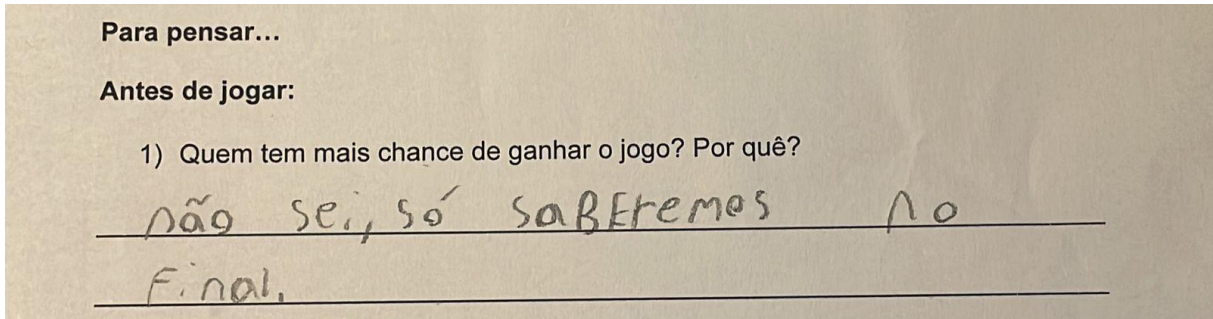 Para pensar...
Antes de jogar:
1) Quem tem mais chance de ganhar o jogo? Por quê?
não sei, só saBEremos no
Final.